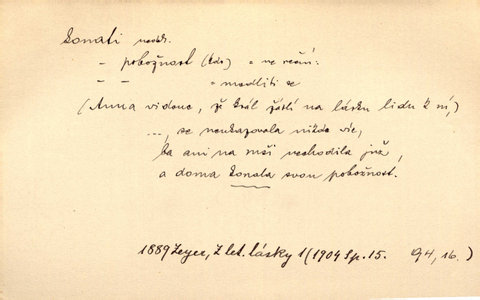 konati nedok.
– pobožnost (kdo) = ve rčení:
– – = modliti se
(Anna vidouc, že král žárlí na lásku lidu k ní,)
..., se neukazovala nikde víc,
ba ani na mši nechodila již,
a doma konala svou pobožnost.
1889 Zeyer, Z let. lásky 1 (1904 Sp. 15. 94, 16.)